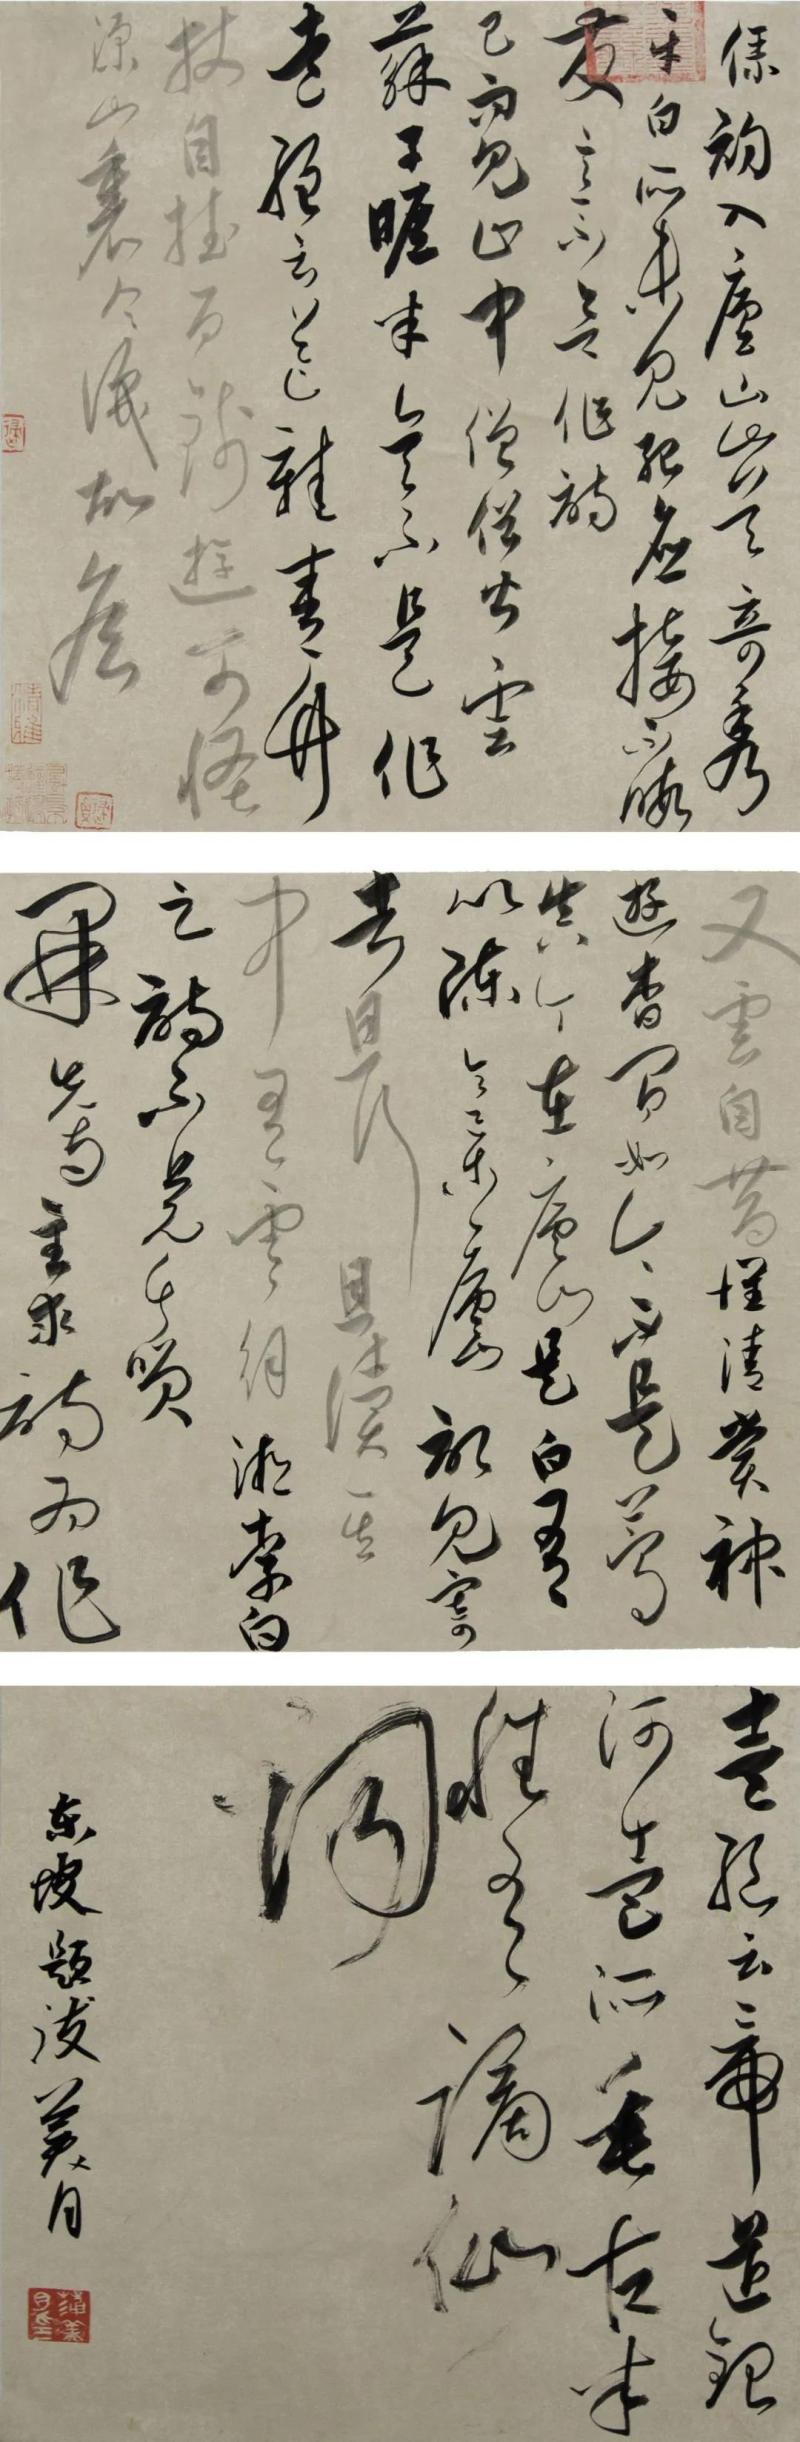 僕初入廬山山谷奇秀
平白所未見殆應接不暇
發意不欲作詩
已而見山中僧俗皆雲
蘇子瞻來矣不覺作
壹絕云芒鞋青竹
杖自挂百錢遊可怪
深山裏人人識故侯
又雲自昔懷清賞神
遊杳靄間如今不是夢
真個在廬山是日有
以陳令舉廬山記見寄
者且行且讀其
中有雲徐凝李白
之詩不覺失笑
開先寺主求詩為作
壹絕云帝遣銀
河壹派垂古來
惟有謫仙
詞
東坡題跋 美月